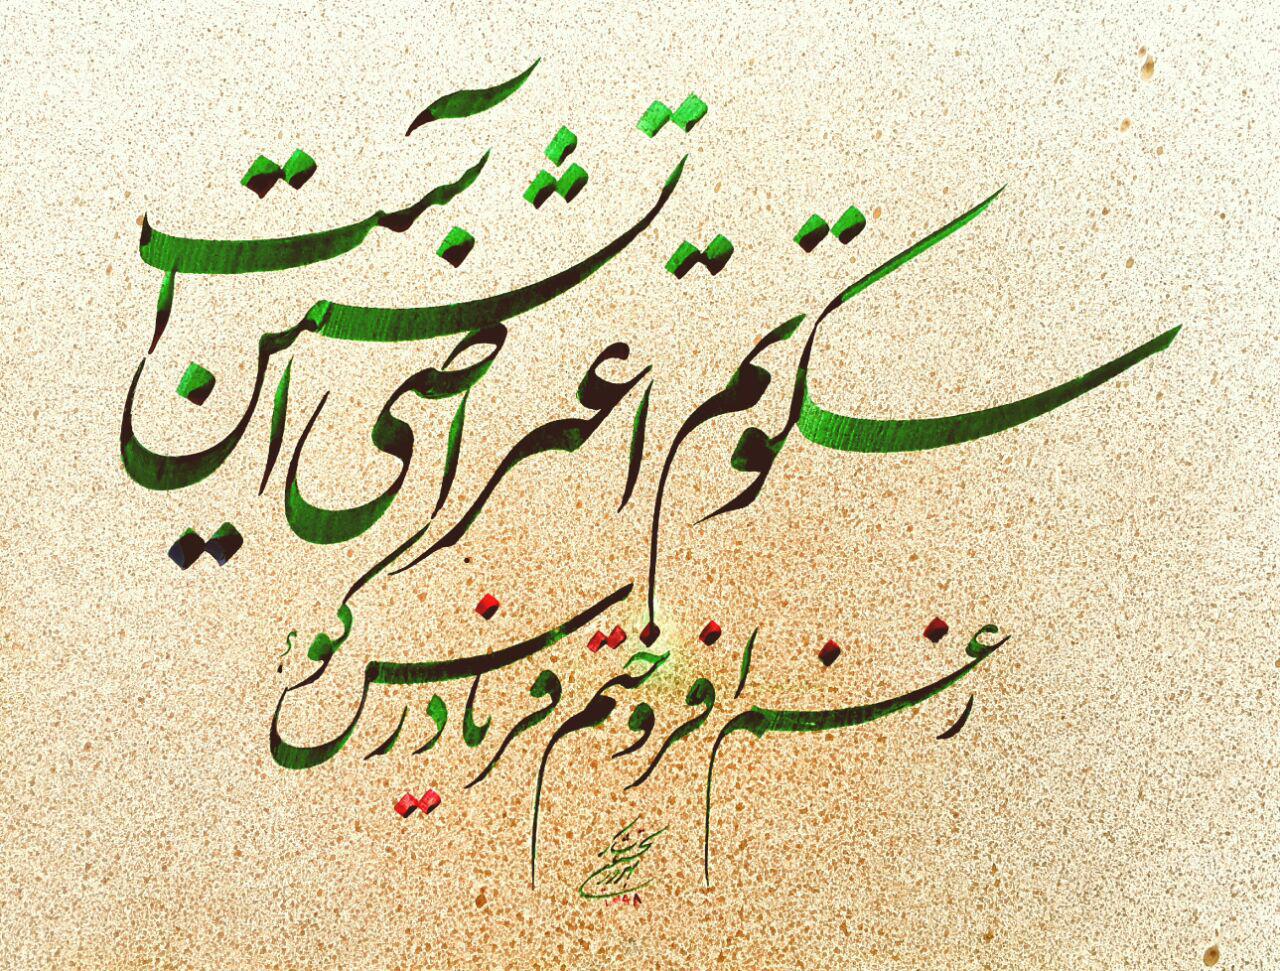 سکوتم اعتراضی آتشین است
ز غم افروختم فریادرس کو؟